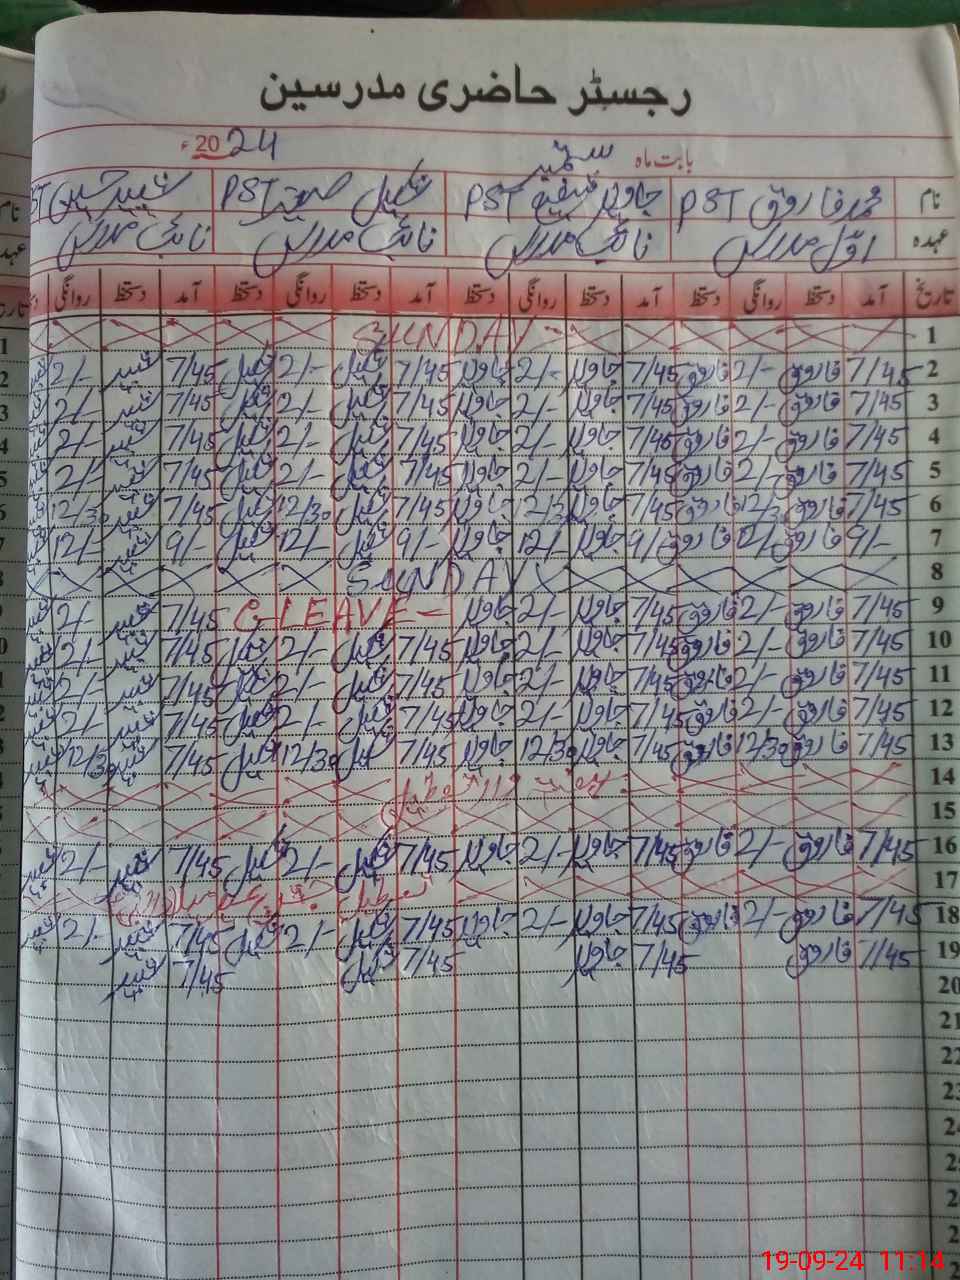 رجسٹر حاضری مدرسین
بابت ماہ ستمبر 2024ء
نام محمد فاروق PST جاوید PST شکیل PST شبیر حسین PST
عہدہ اول مدرس نائب مدرس نائب مدرس نائب مدرس
تاریخ آمد دستخط روانگی دستخط آمد دستخط روانگی دستخط آمد دستخط روانگی دستخط آمد دستخط روانگی
1 SUNDAY
2 7/45 فاروق 2/- فاروق 7/45 جاوید 2/- جاوید 7/45 شکیل 2/- شکیل 7/45 شبیر 2/- شبیر
3 7/45 فاروق 2/- فاروق 7/45 جاوید 2/- جاوید 7/45 شکیل 2/- شکیل 7/45 شبیر 2/- شبیر
4 7/45 فاروق 2/- فاروق 7/45 جاوید 2/- جاوید 7/45 شکیل 2/- شکیل 7/45 شبیر 2/- شبیر
5 7/45 فاروق 2/- فاروق 7/45 جاوید 2/- جاوید 7/45 شکیل 2/- شکیل 7/45 شبیر 2/- شبیر
6 7/45 فاروق 12/30 فاروق 7/45 جاوید 12/30 جاوید 7/45 شکیل 12/30 شکیل 7/45 شبیر 12/30 شبیر
7 9/- فاروق 12/- فاروق 9/- جاوید 12/- جاوید 9/- شکیل 12/- شکیل 9/- شبیر 12/- شبیر
8 SUNDAY
9 7/45 فاروق 2/- فاروق 7/45 جاوید 2/- جاوید C-LEAVE- 7/45 شبیر 2/- شبیر
10 7/45 فاروق 2/- فاروق 7/45 جاوید 2/- جاوید 7/45 شکیل 2/- شکیل 7/45 شبیر 2/- شبیر
11 7/45 فاروق 2/- فاروق 7/45 جاوید 2/- جاوید 7/45 شکیل 2/- شکیل 7/45 شبیر 2/- شبیر
12 7/45 فاروق 2/- فاروق 7/45 جاوید 2/- جاوید 7/45 شکیل 2/- شکیل 7/45 شبیر 2/- شبیر
13 7/45 فاروق 12/30 فاروق 7/45 جاوید 12/30 جاوید 7/45 شکیل 12/30 شکیل 7/45 شبیر 12/30 شبیر
14
15
16 7/45 فاروق 2/- فاروق 7/45 جاوید 2/- جاوید 7/45 شکیل 2/- شکیل 7/45 شبیر 2/- شبیر
17
18 7/45 فاروق 2/- فاروق 7/45 جاوید 2/- جاوید 7/45 شکیل 2/- شکیل 7/45 شبیر 2/- شبیر
19 7/45 فاروق 7/45 جاوید 7/45 شکیل 7/45 شبیر
20
21
22
23
19-09-24 11:14